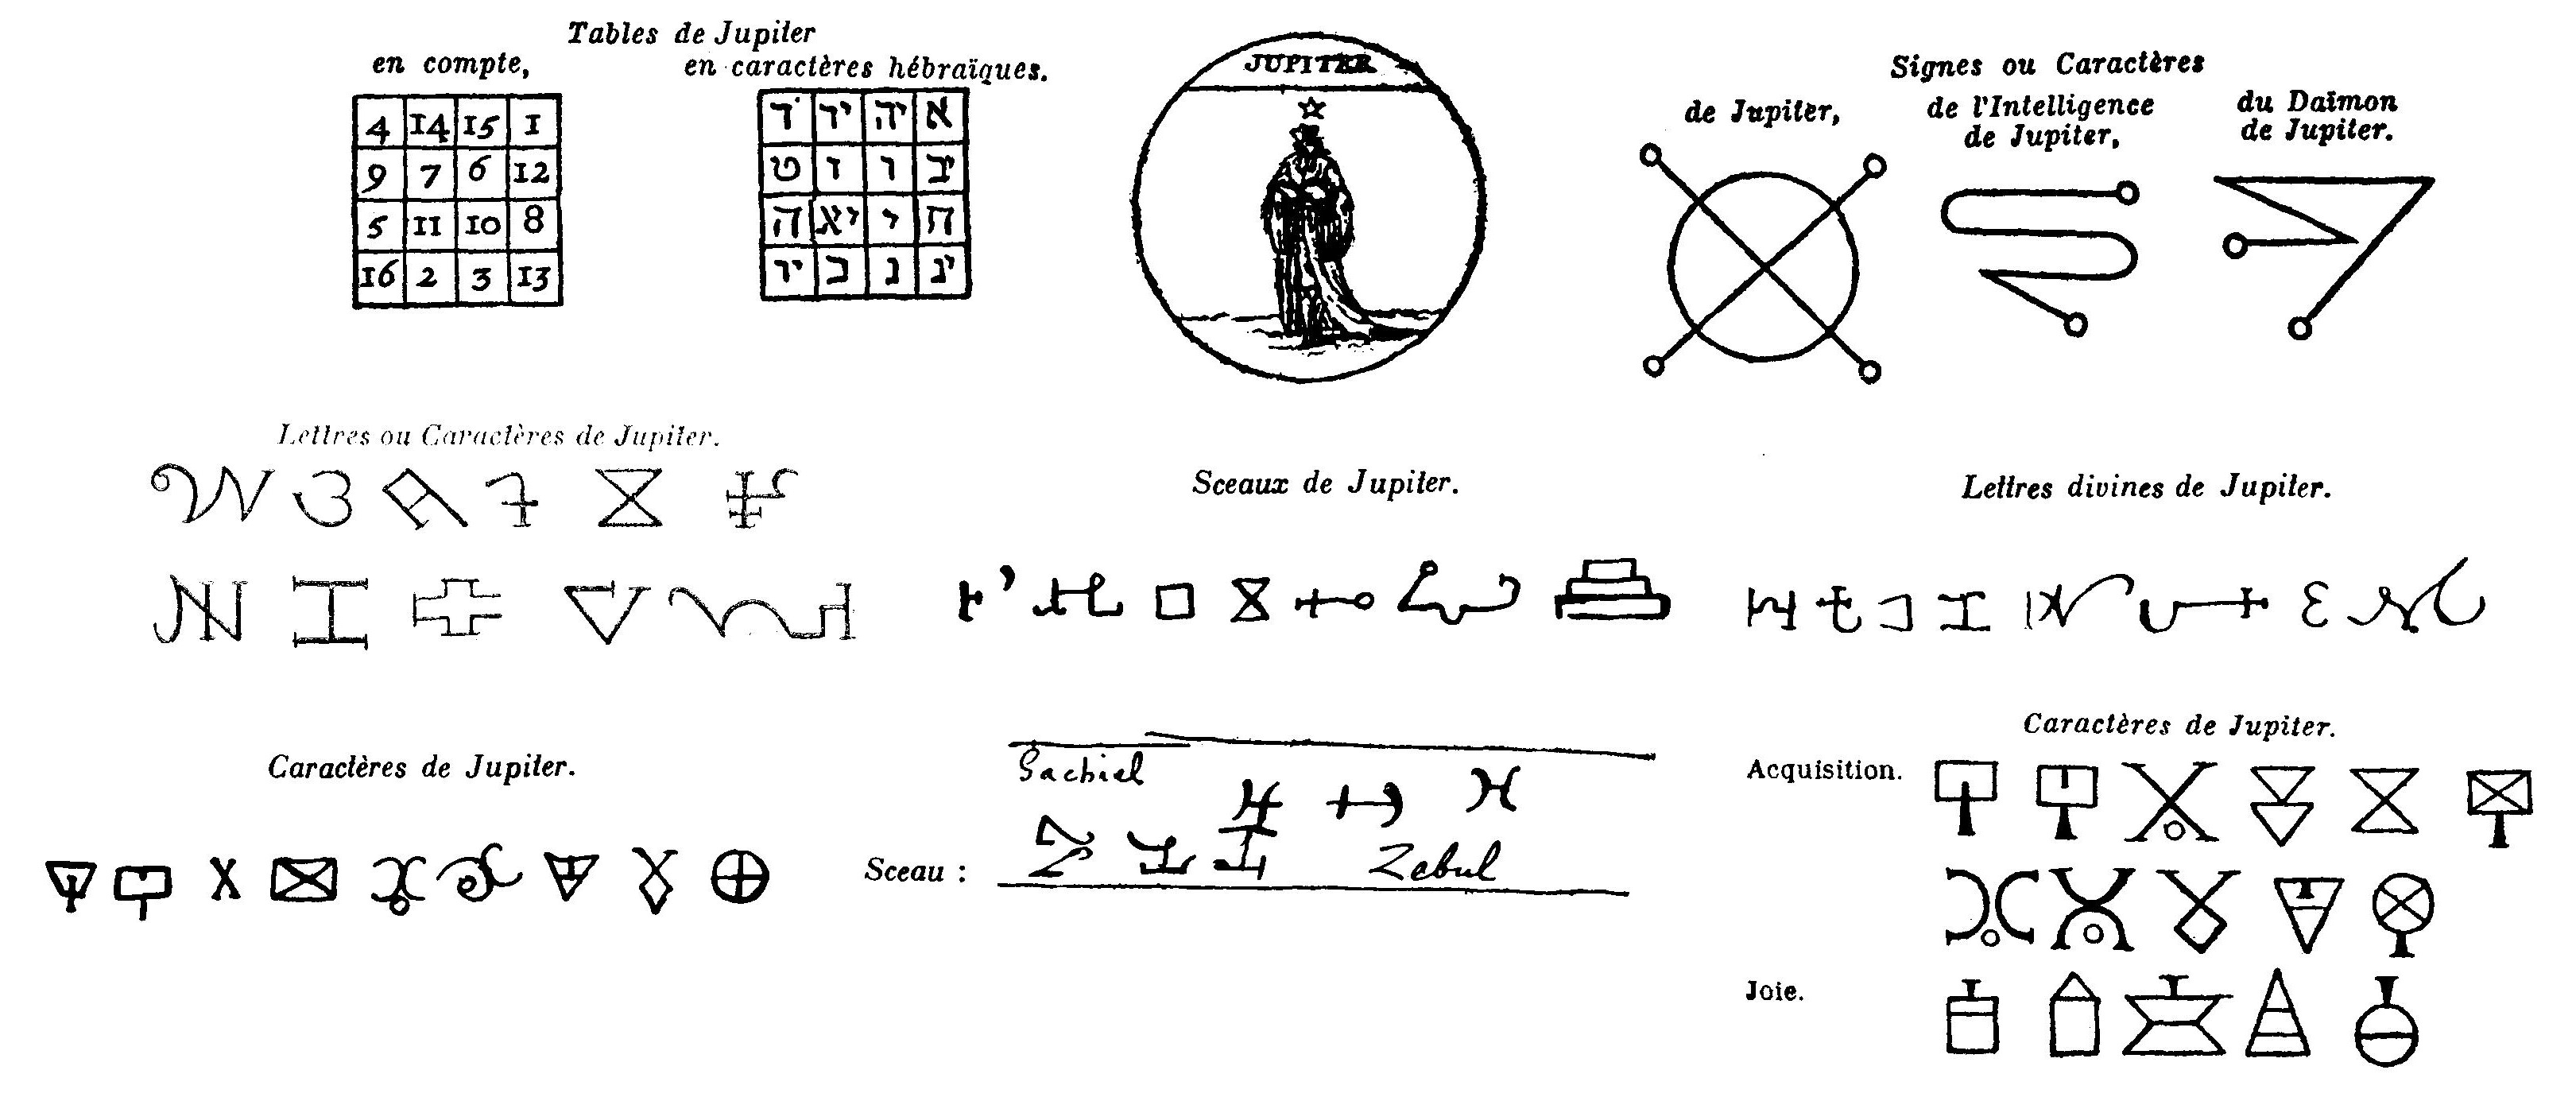 Tables de Jupiter
en compte,
en caractères hébraïques.
4 14 15 1
9 7 6 12
5 11 10 8
16 2 3 13
א יה יד ד
יב ו ז ט
ח י יא ה
יג ג ב יו
JUPITER
Signes ou Caractères
de Jupiter,
de l'Intelligence
de Jupiter,
du Daïmon
de Jupiter.
Lettres ou Caractères de Jupiter.
Sceaux de Jupiter.
Lettres divines de Jupiter.
Caractères de Jupiter.
Sceau :
Sachiel
Zebul
Caractères de Jupiter.
Acquisition.
Joie.